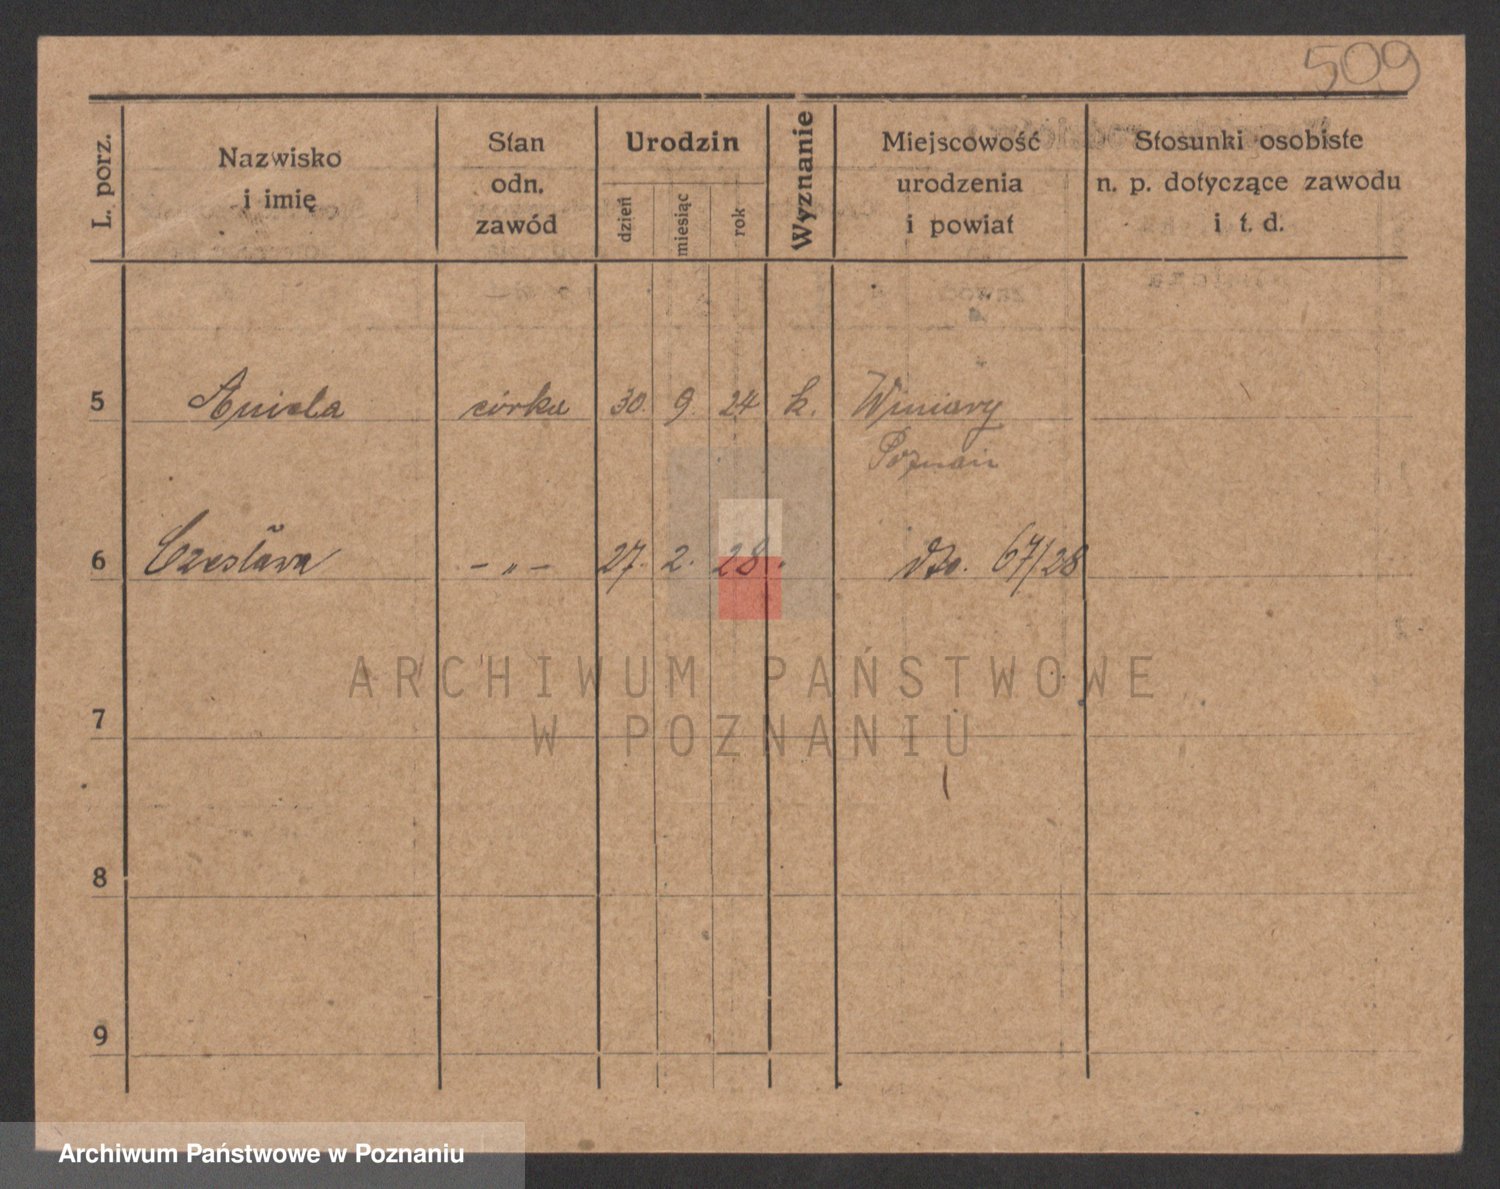 509
L. porz.
Nazwisko
i imię
Stan
odn.
zawód
Urodzin
dzień
miesiąc
rok
Wyznanie
Miejscowość
urodzenia
i powiat
Stosunki osobiste
n. p. dotyczące zawodu
i t. d.
5 Aniela córka 30. 9. 24 k. Winiary
Poznań
6 Czesława - „ - 27. 2. 28 67/28
ARCHIWUM PAŃSTWOWE
7
W POZNANIU
8
9
Archiwum Państwowe w Poznaniu